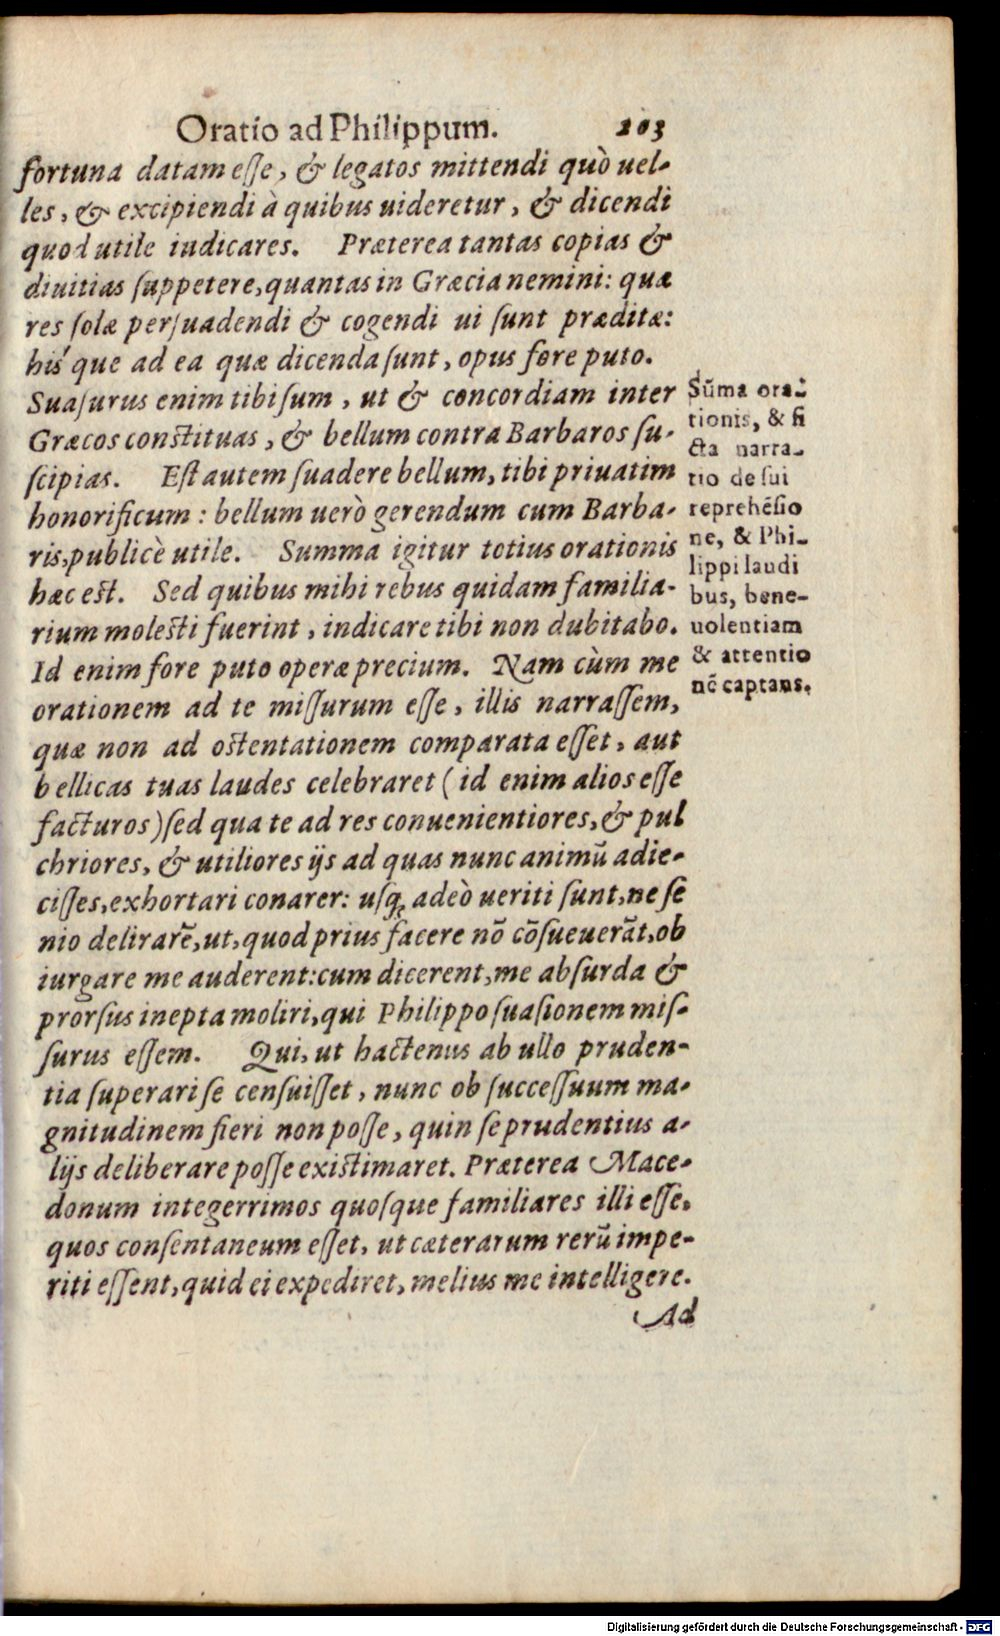 Oratio ad Philippum. 203
fortuna datam esse, & legatos mittendi quò uel-
les, & excipiendi à quibus uideretur, & dicendi
quod utile iudicares. Præterea tantas copias &
diuitias suppetere, quantas in Græcia nemini: quæ
res solæ persuadendi & cogendi ui sunt præditæ:
his'que ad ea quæ dicenda sunt, opus fore puto.
Suasurus enim tibi sum, ut & concordiam inter
Græcos constituas, & bellum contra Barbaros su-
scipias. Est autem suadere bellum, tibi priuatim
honorificum: bellum uerò gerendum cum Barba-
ris, publicè utile. Summa igitur totius orationis
hæc est. Sed quibus mihi rebus quidam familia-
rium molesti fuerint, indicare tibi non dubitabo.
Id enim fore puto operæprecium. Nam cùm me
orationem ad te missurum esse, illis narrassem,
quæ non ad ostentationem comparata esset, aut
bellicas tuas laudes celebraret (id enim alios esse
facturos) sed qua te ad res conuenientiores, & pul
chriores, & utiliores ijs ad quas nunc animũ adie-
cisses, exhortari conarer: usq; adeò ueriti sunt, ne se
nio delirarẽ, ut, quod prius facere nõ cõsueuerãt, ob
iurgare me auderent: cum dicerent, me absurda &
prorsus inepta moliri, qui Philippo suasionem mis-
surus essem. Qui, ut hactenus ab ullo pruden-
tia superari se censuisset, nunc ob successuum ma-
gnitudinem fieri non posse, quin se prudentius a-
lijs deliberare posse existimaret. Præterea Mace-
donum integerrimos quosque familiares illi esse,
quos consentaneum esset, ut cæterarum rerũ impe-
riti essent, quid ei expediret, melius me intelligere.
Ad
Sũma ora-
tionis, & fi
cta narra-
tio de sui
reprehẽsio
ne, & Phi-
lippi laudi
bus, bene-
uolentiam
& attentio
nẽ captans.
Digitalisierung gefördert durch die Deutsche Forschungsgemeinschaft - DFG